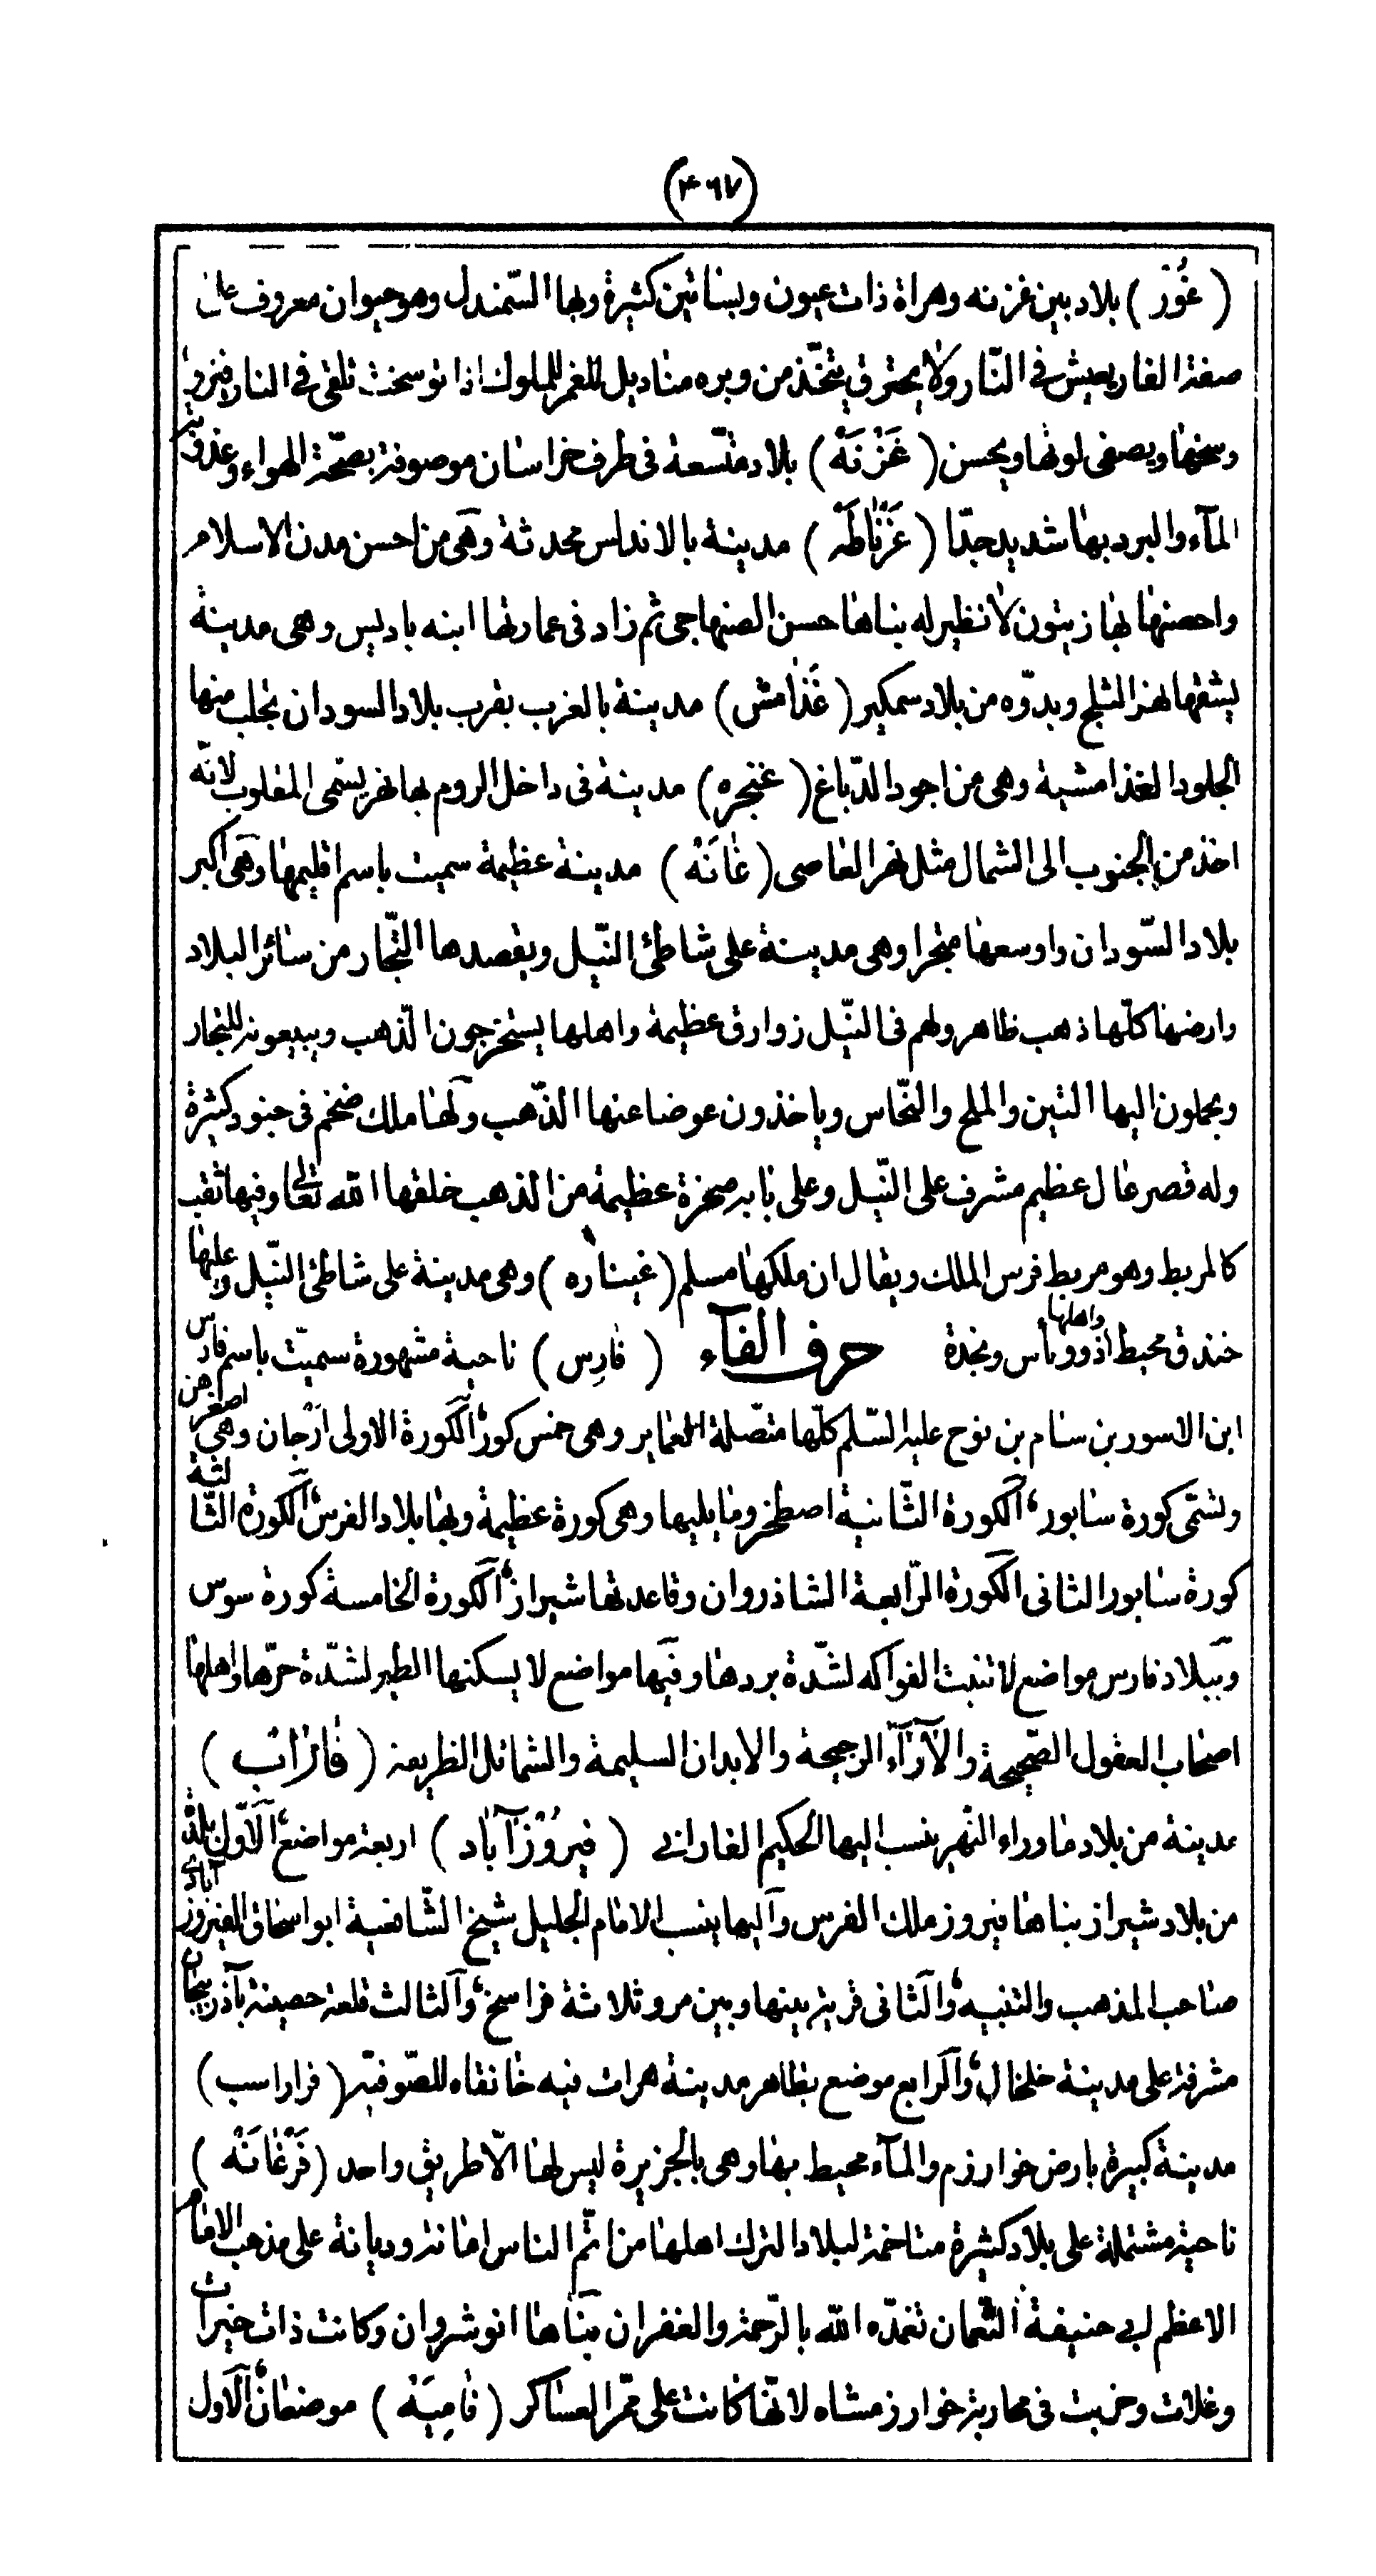 (۴۶۷)
( غُوْر ) بلاد بين غزنه وهراة ذات عيون وبساتين كثيرة وبها السّمندل وهو حيوان معروف على
صفة الفار يعيش فى النّار ولا يحترق يتخّذ من وبره مناديل للغمر للملوك اذا توسخت تلقى فى النار فيزول
وسخها ويصفى لونها ويحسن ( غَزْنَهْ ) بلاد متّسعة فى طرف خراسان موصوفة بصحّة الهواء وعذوبة
المآء والبرد بها شديد جدّا ( غَرْنَاطَهْ ) مدينة بالاندلس محدثة وهى من احسن مدن الاسلام
واحصنها بها زيتون لا نظير له بناها حسن الصنهاجى ثم زاد فى عمارتها ابنه باديس وهى مدينة
يشقها نهر الثلج وبدّوه من بلاد سمكير ( غَذَامَش ) مدينة بالغرب بقرب بلاد السودان يجلب منها
الجلود الغذامشية وهى من اجود الدّباغ ( غنجره ) مدينة فى داخل الروم بها نهر يسّمى المقلوب لانّه
اخذ من الجنوب الى الشمال مثل نهر العاصى ( غَانَهْ ) مدينة عظيمة سميت باسم اقليمها وهى اكبر
بلاد السّودان واوسعها متجرا وهى مدينة على شاطئ النّيل ويقصدها التّجار من سائر البلاد
وارضها كلّها ذهب ظاهر ولهم فى النيّل زوارق عظيمة واهلها يستخرجون الذهب ويبيعونه للتجار
ويحملون اليها التين والملح والنّحاس وياخذون عوضا عنها الذّهب ولها ملك ضخم فى جنود كثيرة
وله قصر عال عظيم مشرف على النّيل وعلى بابه صخرة عظيمة من الذهب خلقها الله تعالى وفيها ثقب
كالمربط وهو مربط فرس الملك ويقال ان ملكها مسلم ( غيناره ) وهى مدينة على شاطئ النّيل وعليها
خندق محيط واهلها اذوو باس ونجدة حرف الفآء ( فارِس ) ناحية مشهورة سميّت باسم فارس
ابن الاسور بن سام بن نوح عليه السّلم كلّها متصّلة العماير وهى خمس كور الكورة الاولى ارّجان وهى اصغرهن
وتسّمى كورة سابور الكورة الثّانية اصطخر وما يليها وهى كورة عظيمة وبها بلاد الفرس الكورة الثّالثة
كورة سابور الثانى الكورة الرّابعة الشاذروان وقاعدتها شيراز الكورة الخامسة كورة سوس
وببلاد فارس مواضع لا تنبت الفواكه لشدّة بردها وفيها مواضع لا يسكنها الطير لشدّة حرّها واهلها
اصحاب العقول الصّحيحة والآرآء الرجيحة والابدان السليمة والشمائل الظريفة ( فَارَابْ )
مدينة من بلاد ما وراء النّهر ينسب اليها الحكيم الفارابى ( فيرُوْزآبَاد ) اربعة مواضع الاوّل بلدة
من بلاد شيراز بناها فيروز ملك الفرس واليها ينسب الامام الجليل شيخ الشّافعية ابو اسحاق الفيروز آبادى
صاحب المذهب والتنبيه والثانى قرية بينها وبين مرو ثلاثة فراسخ والثالث قلعة حصينة بآذربيجان
مشرفة على مدينة خلخال والرابع موضع بظاهر مدينة هرات فيه خانقاه للصّوفيّه ( فراراسب )
مدينة كبيرة بارض خوارزم والمآء محيط بها وهى بالجزيرة ليس لها الّا طريق واحد ( فَرْغَانَهْ )
ناحية مشتملة على بلاد كثيرة متاخمة لبلاد الترك اهلها من اتّم الناس امانة وديانة على مذهب الامام
الاعظم ابى حنيفة النّعمان تغمّده الله بالرّحمة والغفران بناها انوشروان وكانت ذات خيرات
وغلات وخربت فى محاربة خوارزمشاه لانّها كانت على ممّر العساكر ( فَامِيَهْ ) موضعان الاول